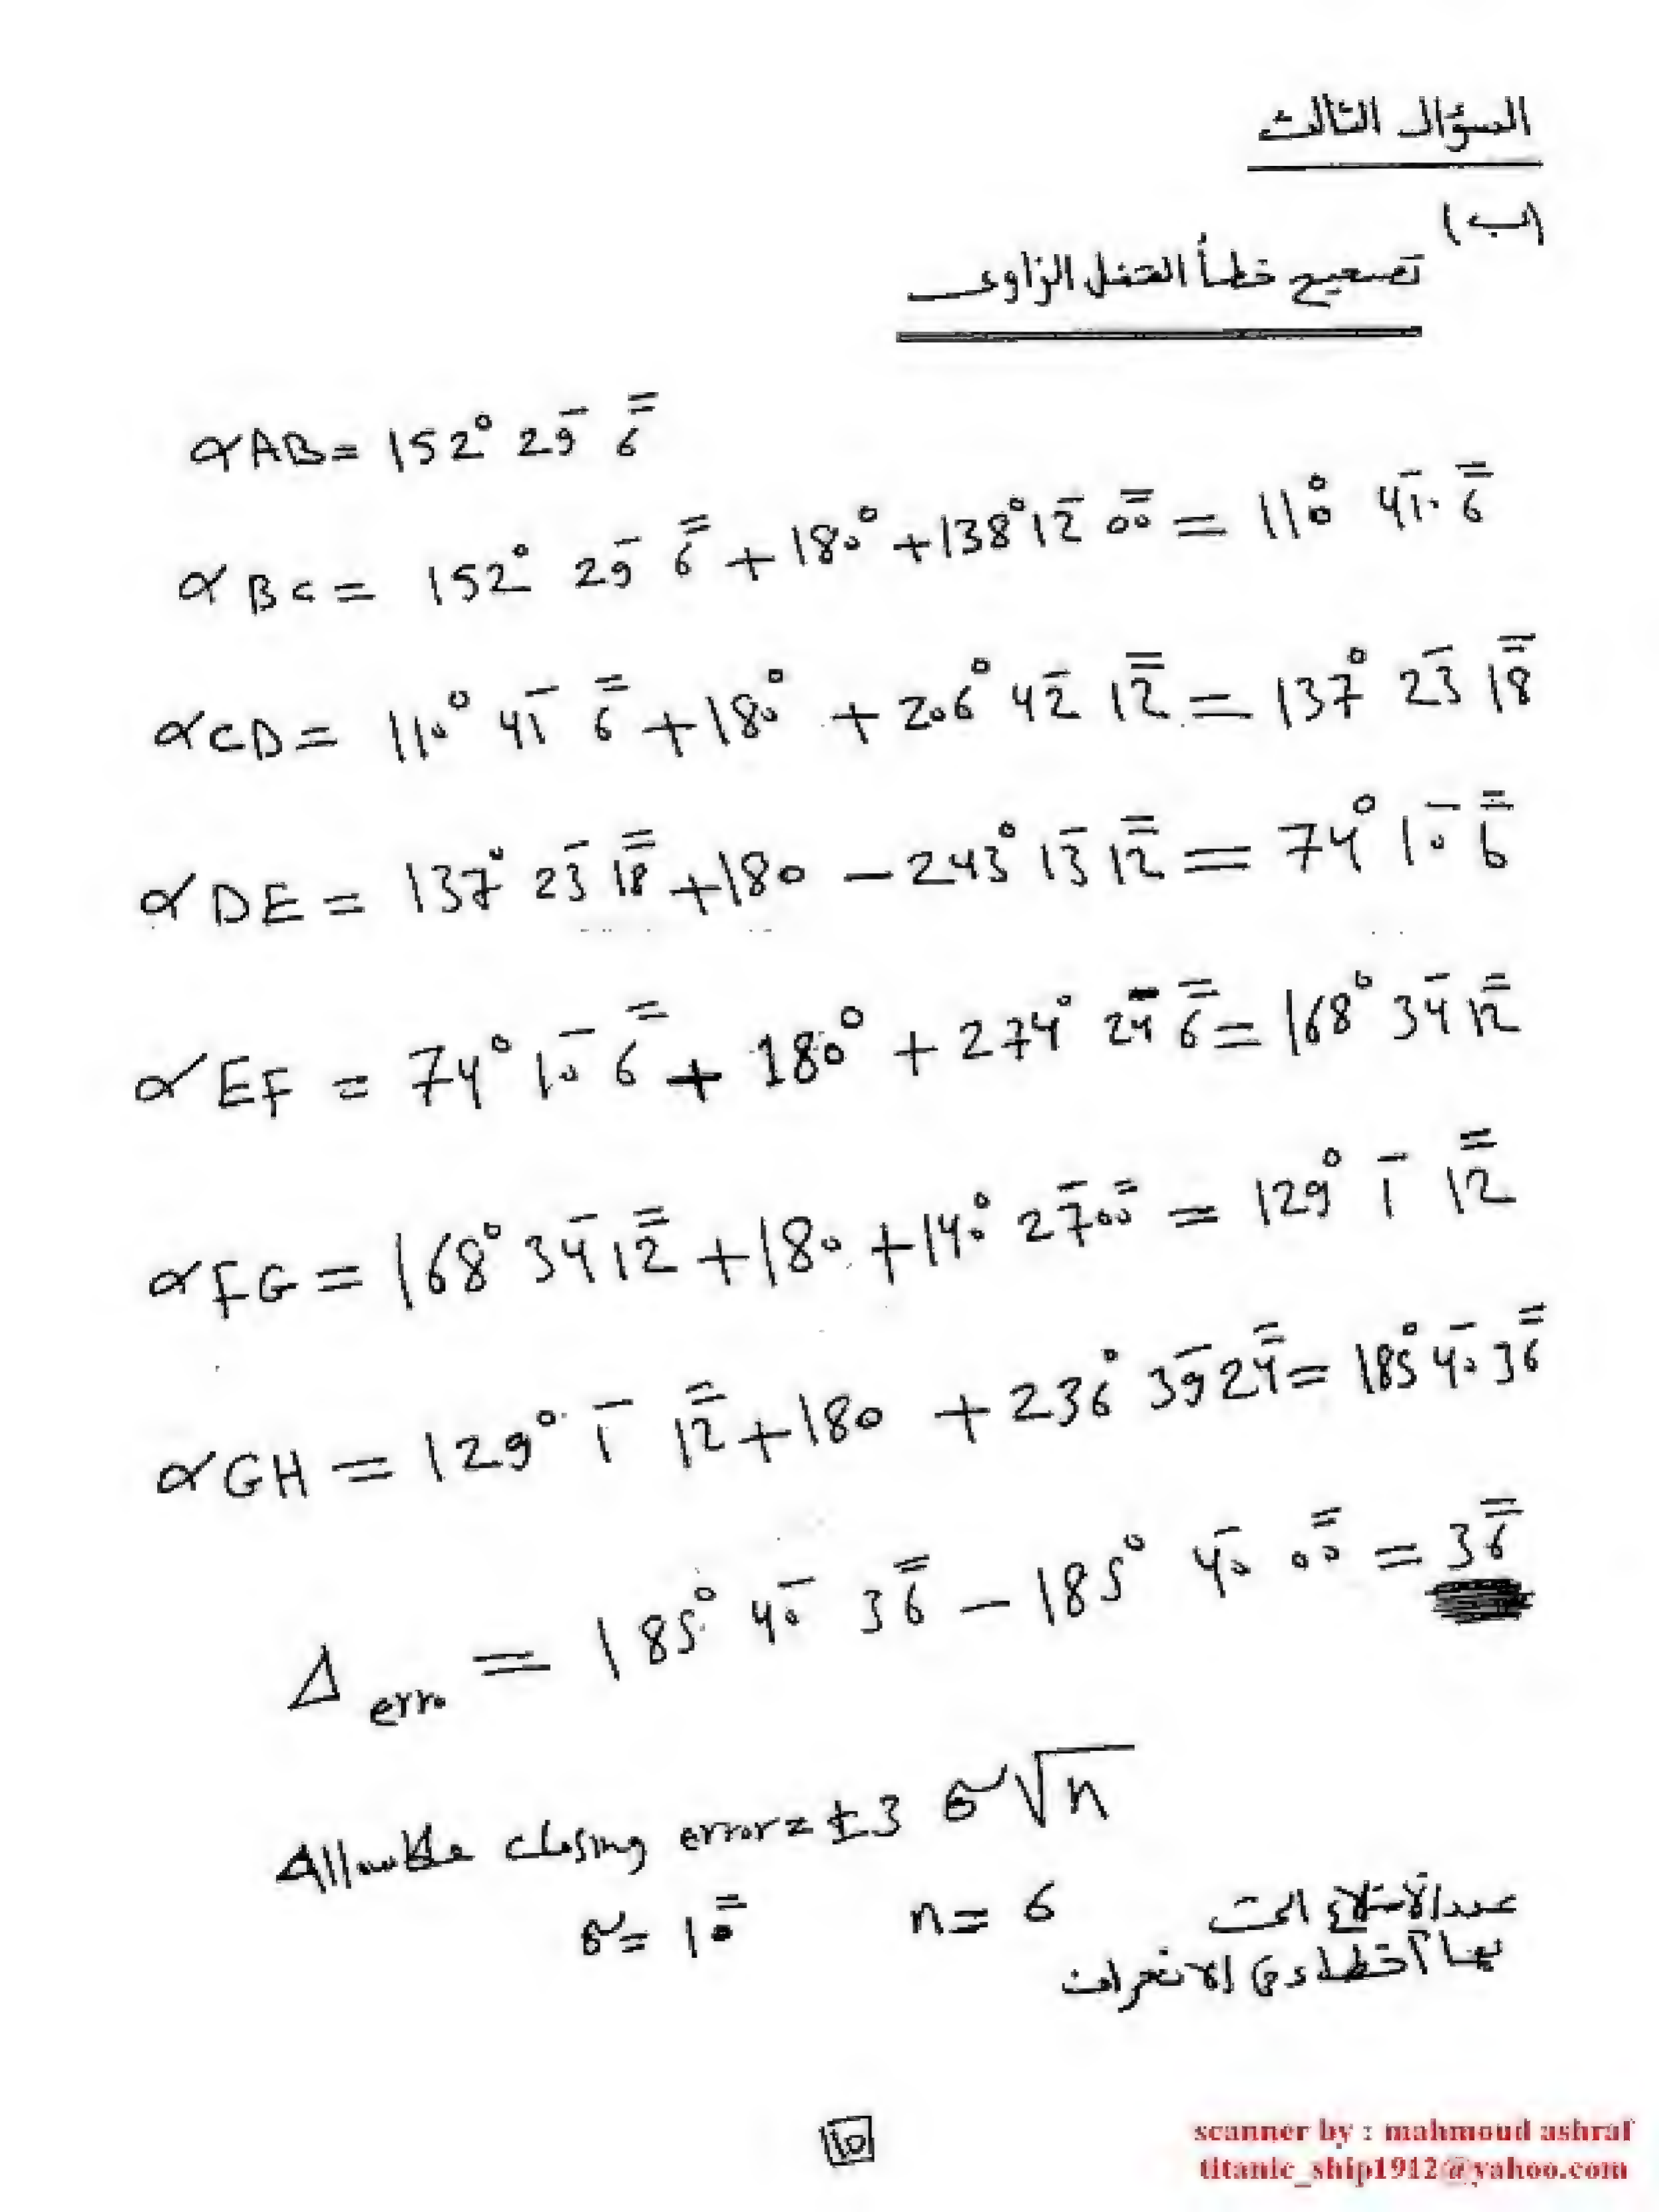 السؤال الثالث
(ب)
تصحيح خطأ القفل الزاوى
αAB = 152° 29' 6"
αBC = 152° 29' 6" + 180° + 138° 12' 00" = 110° 41' 6"
αCD = 110° 41' 6" + 180° + 206° 42' 12" = 137° 23' 18"
αDE = 137° 23' 18" + 180 - 243° 13' 12" = 74° 10' 6"
αEF = 74° 10' 6" + 180° + 274° 24' 6" = 168° 34' 12"
αFG = 168° 34' 12" + 180 + 140° 27' 00" = 129° 1' 12"
αGH = 129° 1' 12" + 180 + 236° 39' 24" = 185° 40' 36"
Δerro = 185° 40' 36" - 185° 40' 00" = 36"
Allowable closing error = ±3 σ√n
σ = 10" n = 6 عدد الأضلاع التى
بها أخطاء فى الانحراف
10
scanner by : mahmoud ashraf
titanic_ship1912@yahoo.com